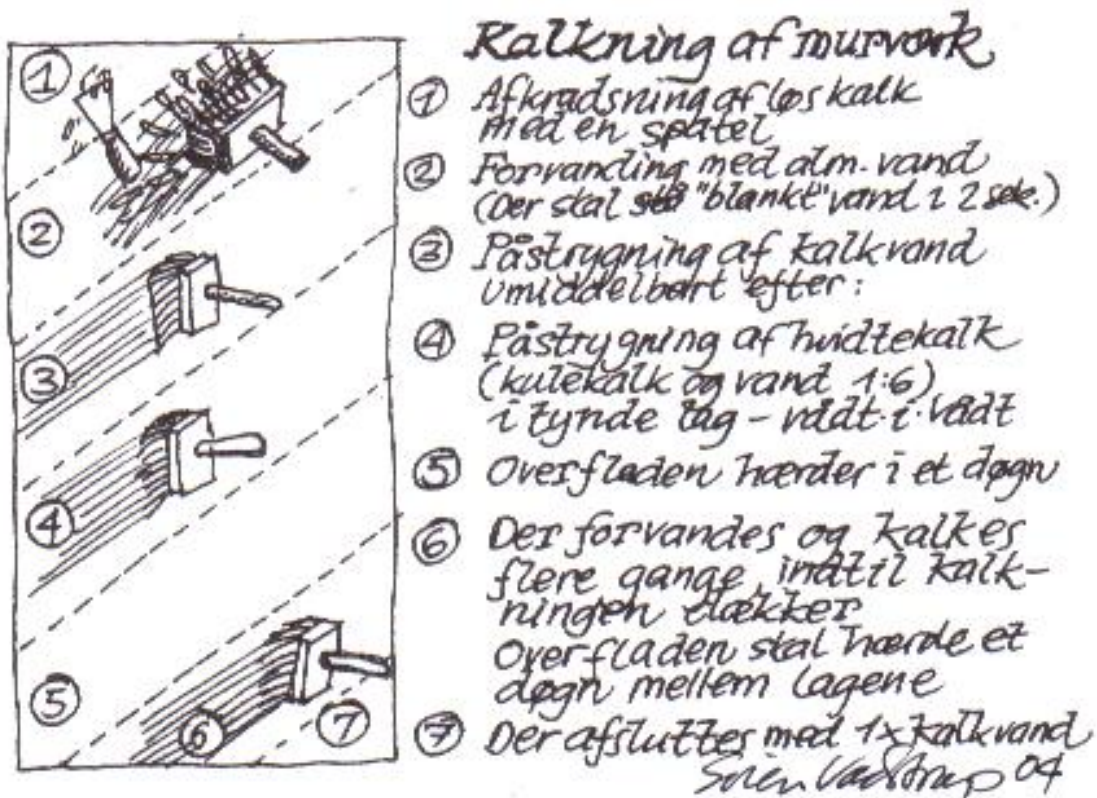 Kalkning af murværk
① Afkradsning af løs kalk
med en spatel
② Forvanding med alm. vand
(Der skal stå "blankt" vand i 2 sek.)
③ Påstrygning af kalkvand
umiddelbart efter:
④ Påstrygning af hvidtekalk
(kulekalk og vand 1:6)
i tynde lag - vådt-i-vådt
⑤ Overfladen hærder i et døgn
⑥ Der forvandes og kalkes
flere gange, indtil kalk-
ningen dækker
Overfladen skal hærde et
døgn mellem lagene
⑦ Der afsluttes med 1x kalkvand
Søren Vadstrup 04
①
②
③
④
⑤
⑥
⑦